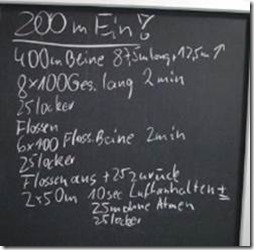 200 m Ein
400m Beine 87,5m lang, 12,5m ↑
8x100 Ges. lang 2 min
25 locker
Flossen
6x100 Floss. Beine 2min
25 locker
Flossen aus + 25 zurück
2x50m 10sec Luftanhalten ±
25m ohne Atmen
25 locker